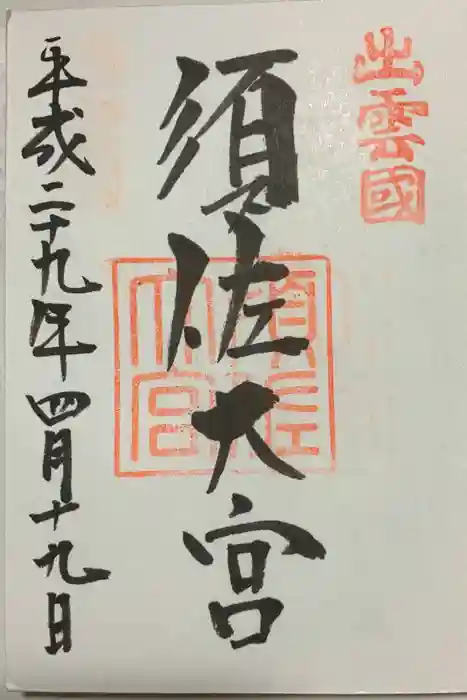 出雲國
須佐大宮
須佐大宮
平成二十九年四月十九日